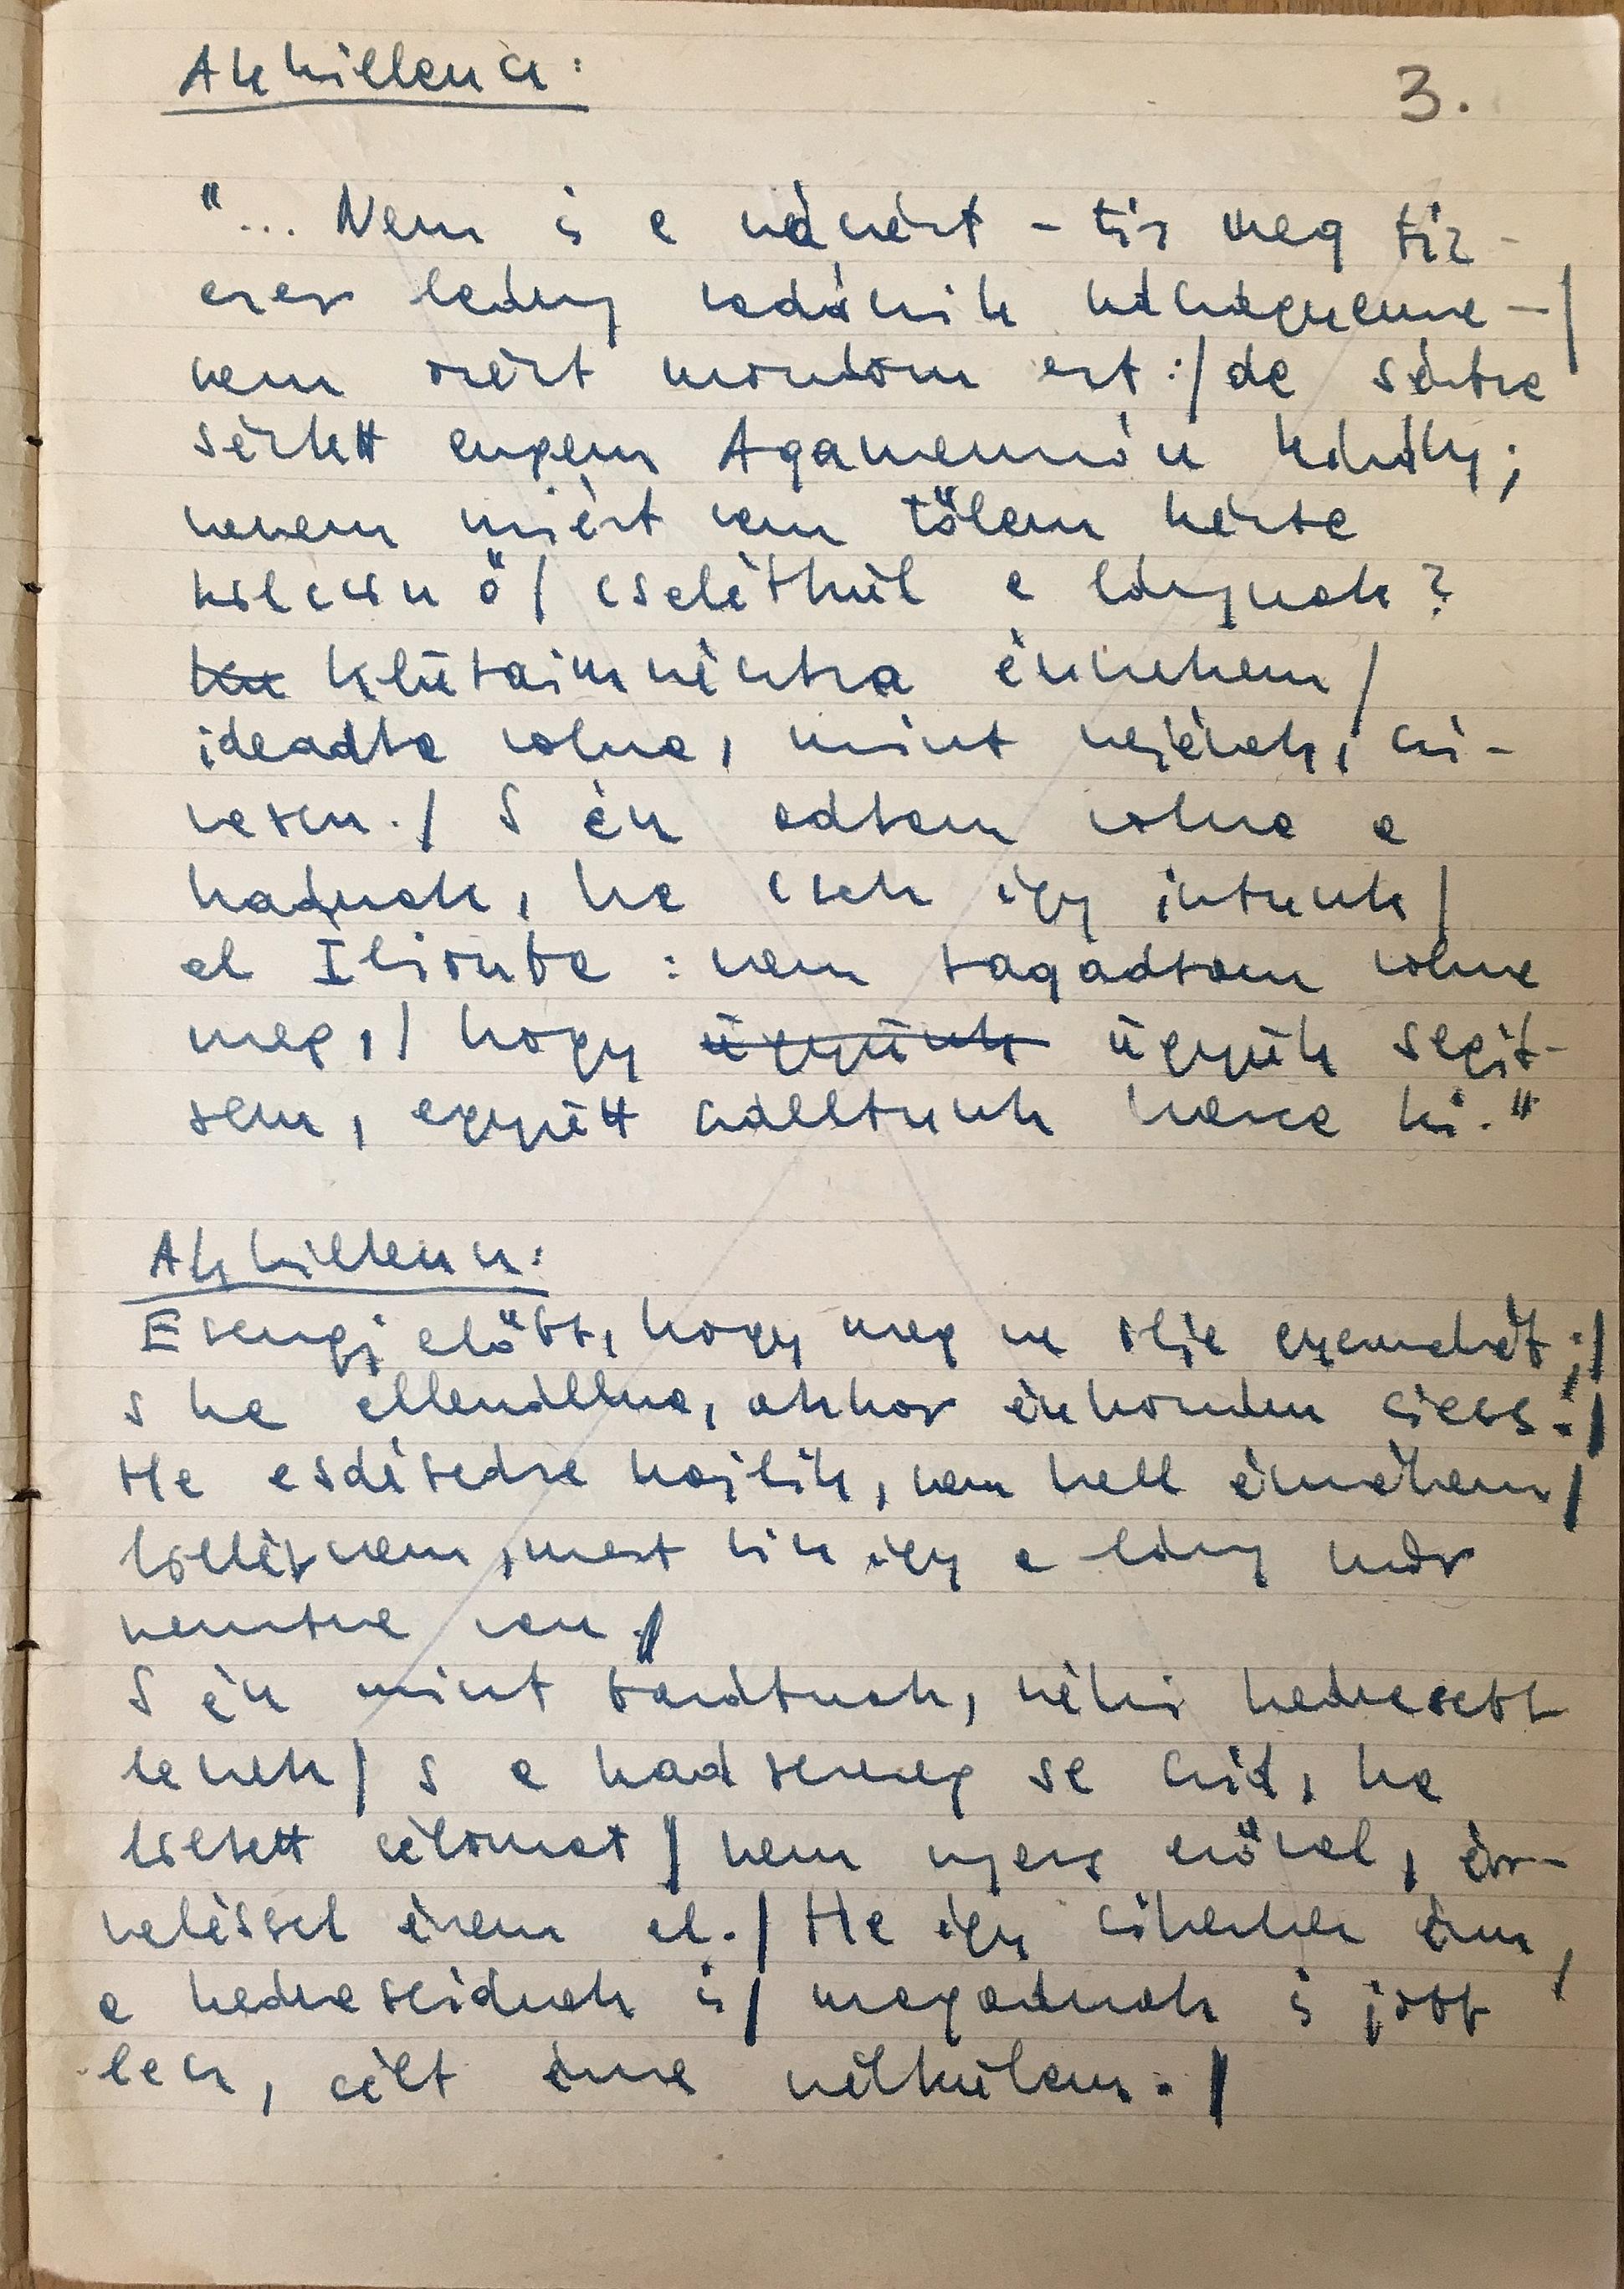 Akhilleusz:
3.
"... Nem is a nászért – tíz meg tíz-
ezer leány vadászik nászágyamra –/
nem azért mondom ezt:/ de sértve
sértett engem Agamemnón király;
nevem miért nem tőlem kérte
kölcsön ő/ csalétkül a lánynak?
Klütaimnésztra énnekem/
ideadta volna, mint vejének, szí-
vesen./ S én adtam volna a
hadnak, ha csak így jutunk/
el Ilionba : nem tagadtam volna
meg,/ hogy ügyünk ügyük segít-
sem, együtt szálltunk harcra ki."
Akhilleusz:
Esengj előbb, hogy meg ne ölje gyermekét;/
s ha ellenállna, akkor énhozzám siess:/
Ha esdésedre hajlik, nem kell énnékem/
föllépnem, mert hisz így a lány már
mentve van./
S én mint barátnak, néki kedvesebb
leszek/ s a hadsereg se szid, ha
célomat/ nem nyers erővel, ér-
veléssel érem el./ Ha így
a kedveseidnek is/ magadnak is jobb
lesz, célt érve nélkülem./